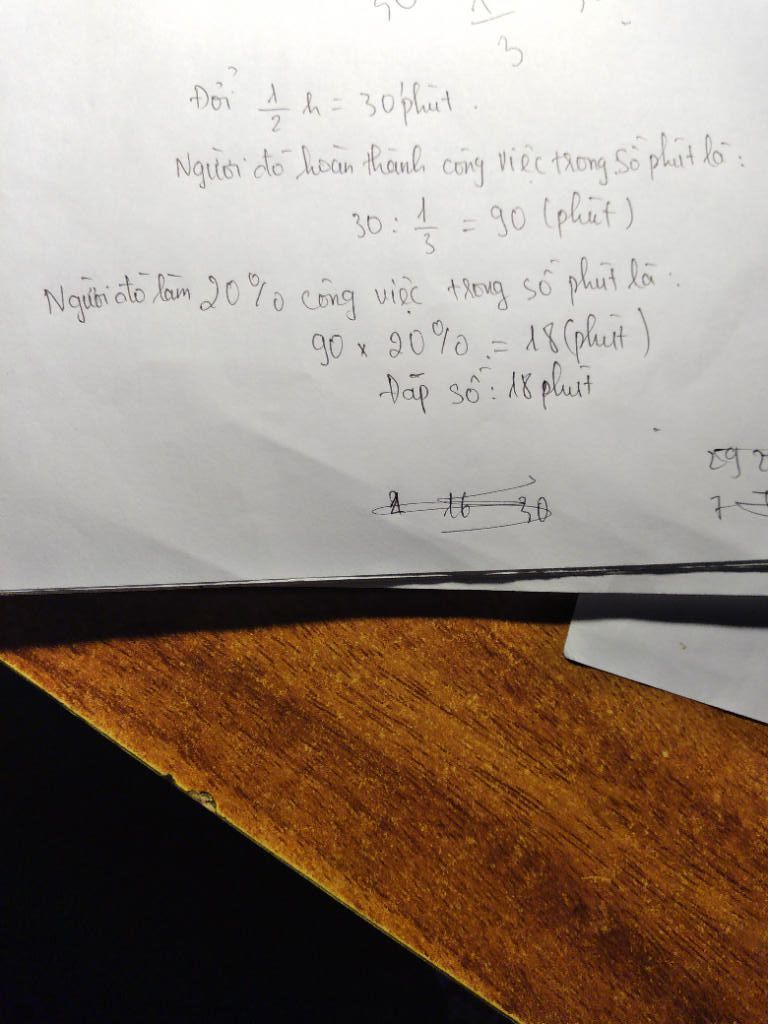 1
3
Đổi 1/2 h = 30 phút.
Người đó hoàn thành công việc trong số phút là:
30 : 1/3 = 90 (phút)
Người đó làm 20% công việc trong số phút là:
90 x 20% = 18 (phút)
Đáp số: 18 phút
16 30
29
7